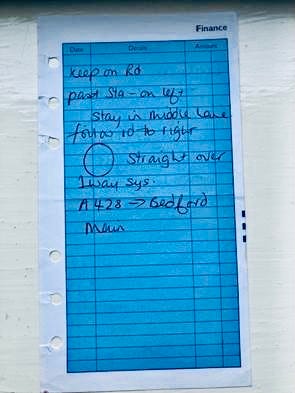 Finance
Date Details Amount
Keep on Rd
past Sta - on left
Stay in middle lane
follow rd to right
Straight over
1way sys.
A428 → Bedford
Main